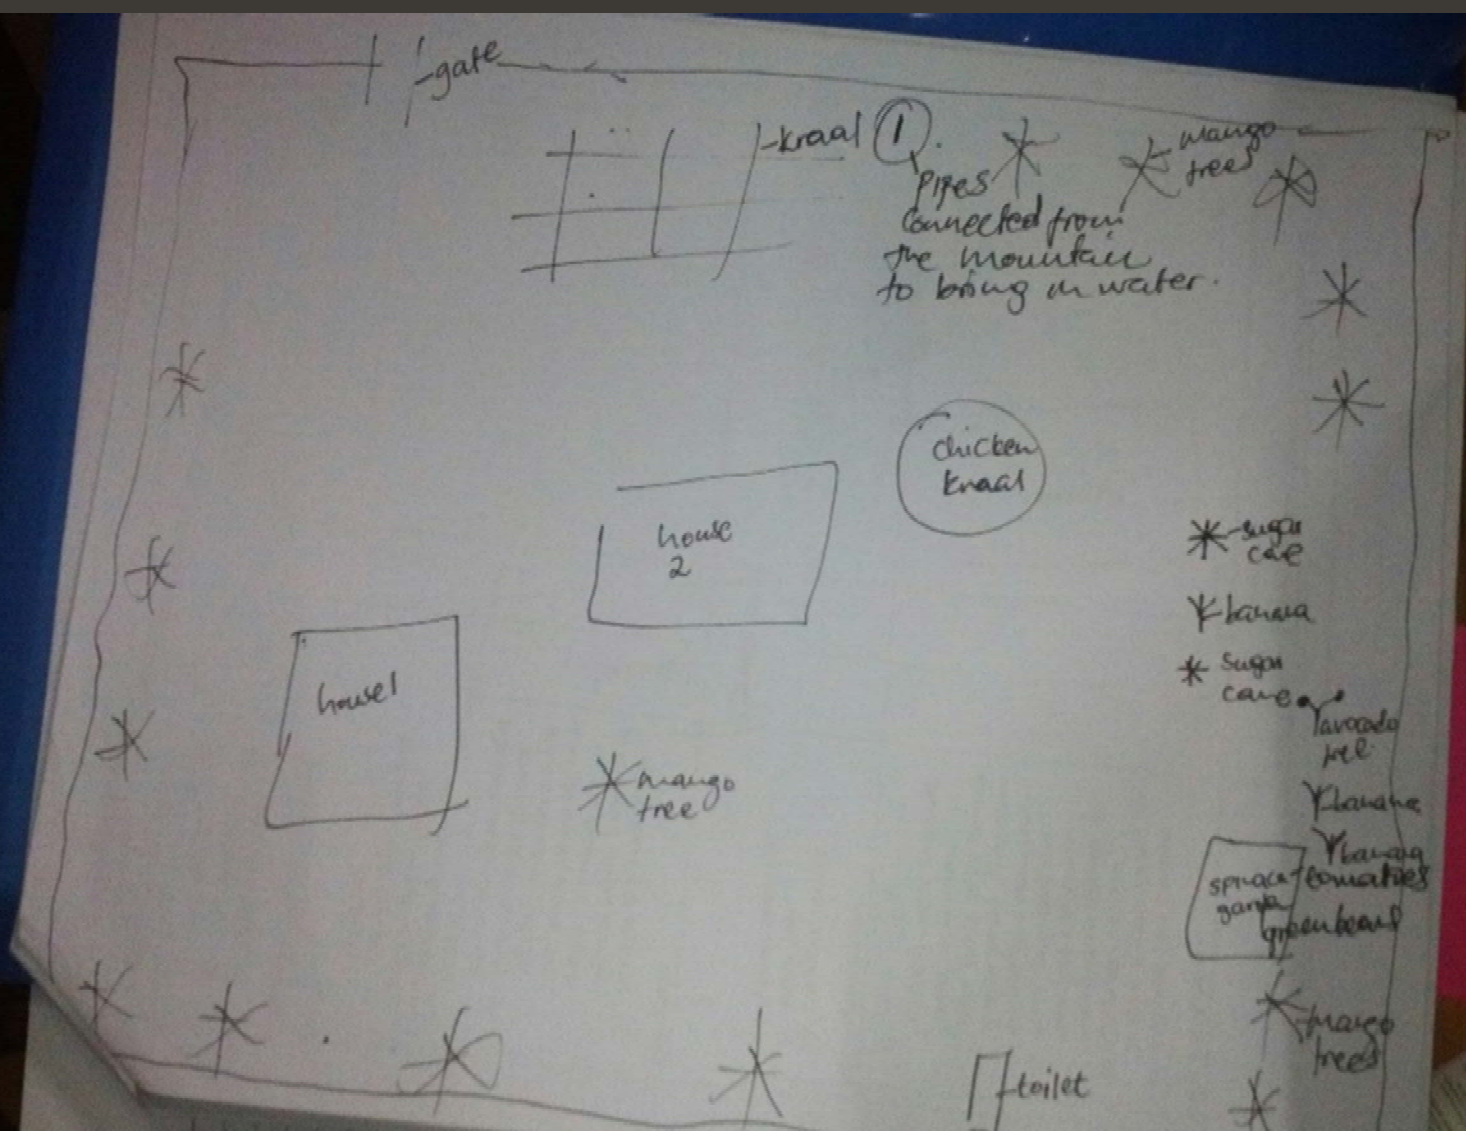 gate
kraal 1
Pipes
Connected from
the mountain
to bring in water.
mango
trees
chicken
kraal
house
2
house1
mango
tree
sugar
cane
banana
sugar
cane
avocado
tree
banana
banana
spinach
tomatoes
garden
green beans
mango
trees
toilet